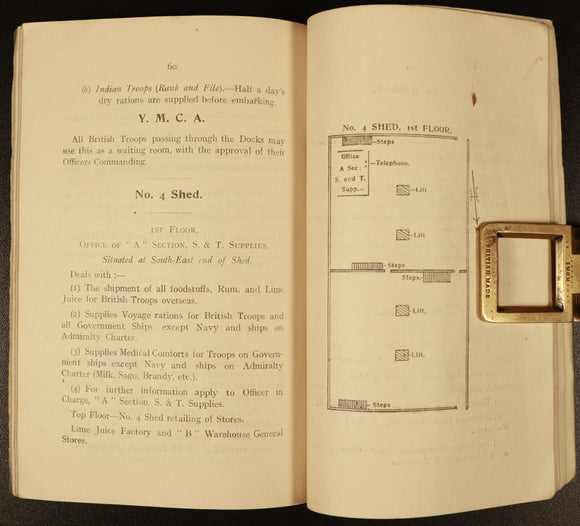 60
(b) Indian Troops (Rank and File).—Half a day's
dry rations are supplied before embarking.
Y. M. C. A.
All British Troops passing through the Docks may
use this as a waiting room, with the approval of their
Officers Commanding.
No. 4 Shed.
1ST FLOOR.
OFFICE OF "A" SECTION, S. & T. SUPPLIES.
Situated at South-East end of Shed.
Deals with :—
(1) The shipment of all foodstuffs, Rum, and Lime
Juice for British Troops overseas.
(2) Supplies Voyage rations for British Troops and
all Government Ships except Navy and ships on
Admiralty Charter.
(3) Supplies Medical Comforts for Troops on Govern-
ment ships except Navy and ships on Admiralty
Charter (Milk, Sago, Brandy, etc.).
(4) For further information apply to Officer in
Charge, "A" Section, S. & T. Supplies.
Top Floor—No. 4 Shed retailing of Stores.
Lime Juice Factory and "B" Warehouse General
Stores.
No. 4 SHED, 1ST FLOOR.
Steps
Office
A Sec:
S. and T.
Supp.—
Telephone.
Lift.
Lift.
Steps
Steps.
Lift.
Lift.
Steps
BRITISH MADE